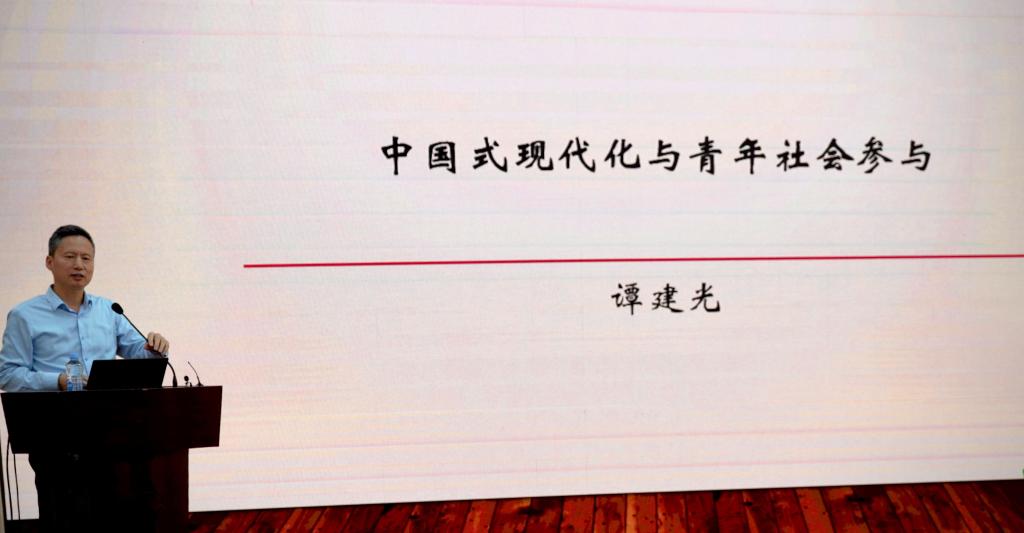 中国式现代化与青年社会参与
谭建光